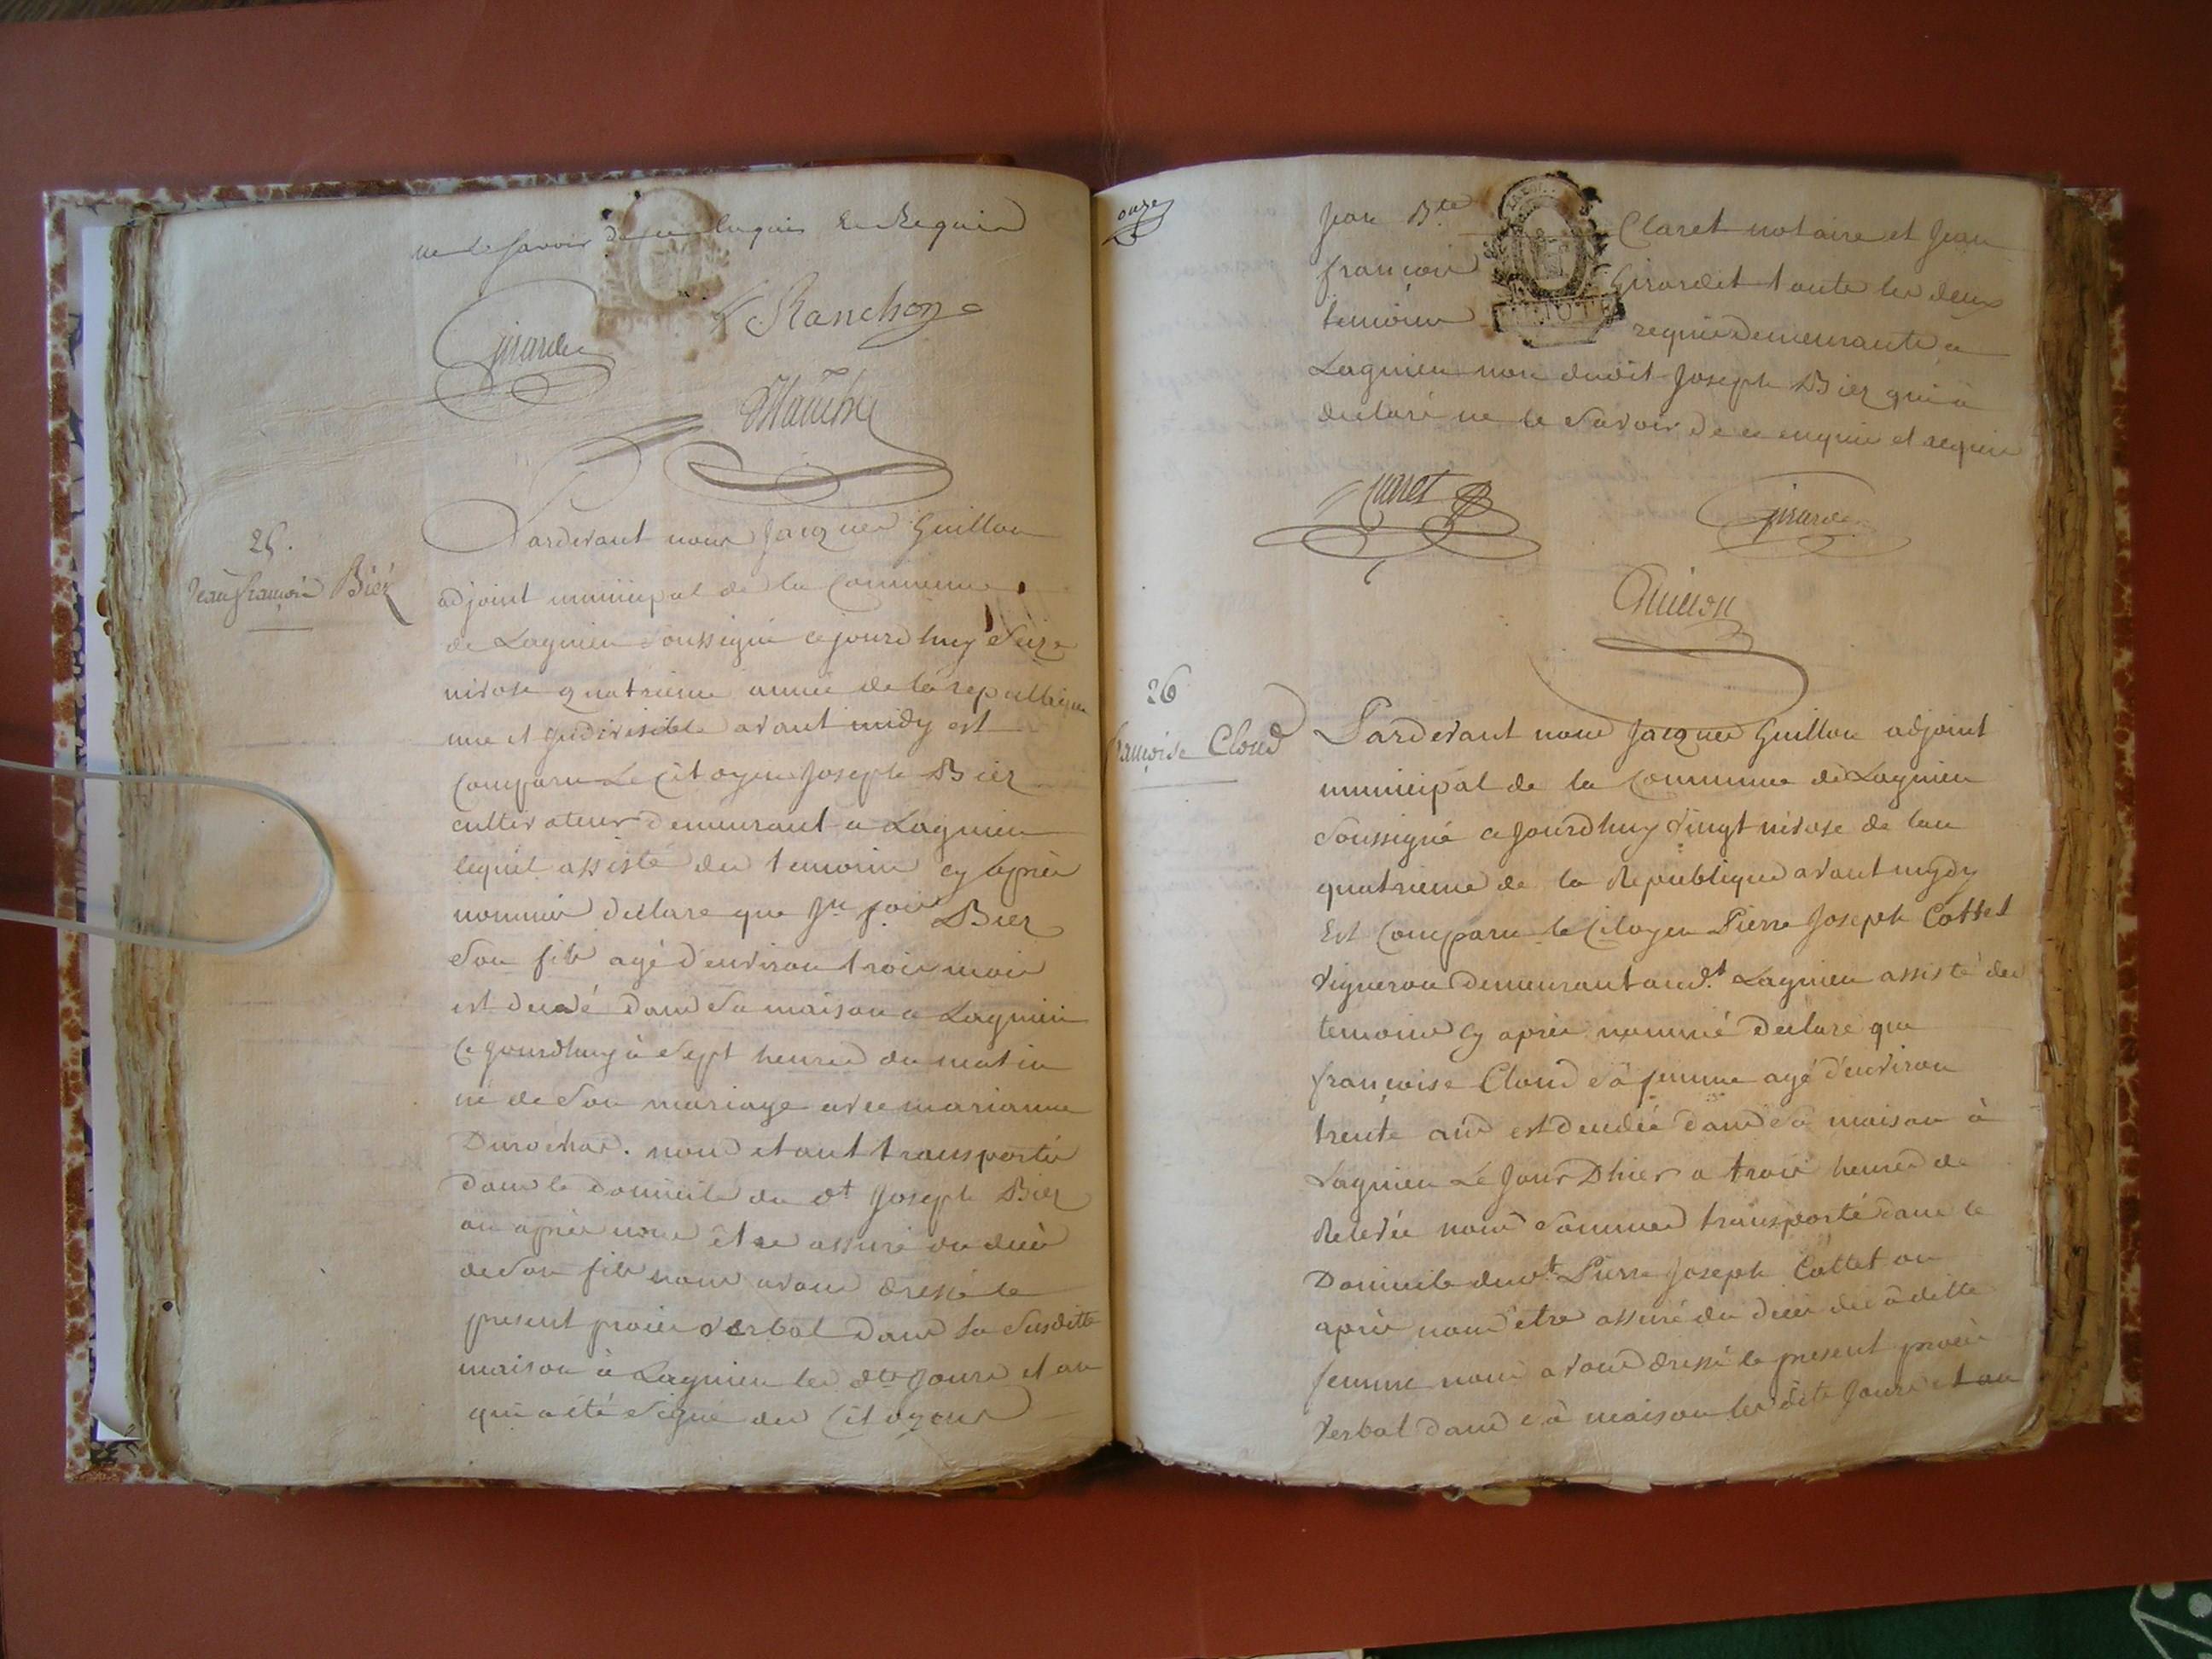 ne le savoir de ce enquis et Requis
Ranchon
Girardet
25.
Jean françois Biéz
Pardevant nous Jacques Guillon
adjoint municipal de la Commune
de Lagnieu soussigné ce jourdhuy Seize
nivose quatrieme année de la republique
une et indivisible avant midy est
Comparu Le Citoyen Joseph Biez
cultivateur demeurant a Lagnieu
lequel assisté des temoins cy après
nommés declare que Jn fois Biez
son fils agé d'environ trois mois
est decedé dans sa maison a Lagnieu
Ce jourdhuy à sept heures du matin
né de son mariage avec marianne
Durochat. nous etant transportés
dans le domicile du dt Joseph Biez
ou après nous etre assuré du decès
de son fils nous avons dressé le
present procès verbal dans la Susditte
maison à Lagnieu les dts Jours et an
qui a été signé des Citoyens
onze
Jean Bte Claret notaire et Jean
françois Girardet toute les deux
temoins requis demeurants a
Lagnieu non dudit Joseph Biez qui a
declaré ne le savoir de ce enquis et requis
Claret
Girardet
Guillon
26
françoise Cloud
Pardevant nous Jacques Guillon adjoint
municipal de la Commune de Lagnieu
soussigné ce Jourdhuy vingt nivose de lan
quatrieme de la Republique avant mydy
Est Comparu le Citoyen Pierre Joseph Cottet
vigneron demeurant aud.t Lagnieu assisté des
temoins cy après nommé declare que
françoise Cloud sa femme agé d'environ
trente ans est decedée dans sa maison à
Lagnieu Le Jour Dhier a trois heures de
Relevée nous sommes transporté dans le
Domicile dud.t Pierre Joseph Cottet ou
après nous etre assuré du decès de saditte
femme nous avons dressé le present procès
Verbal dans sa maison les dits Jours et an